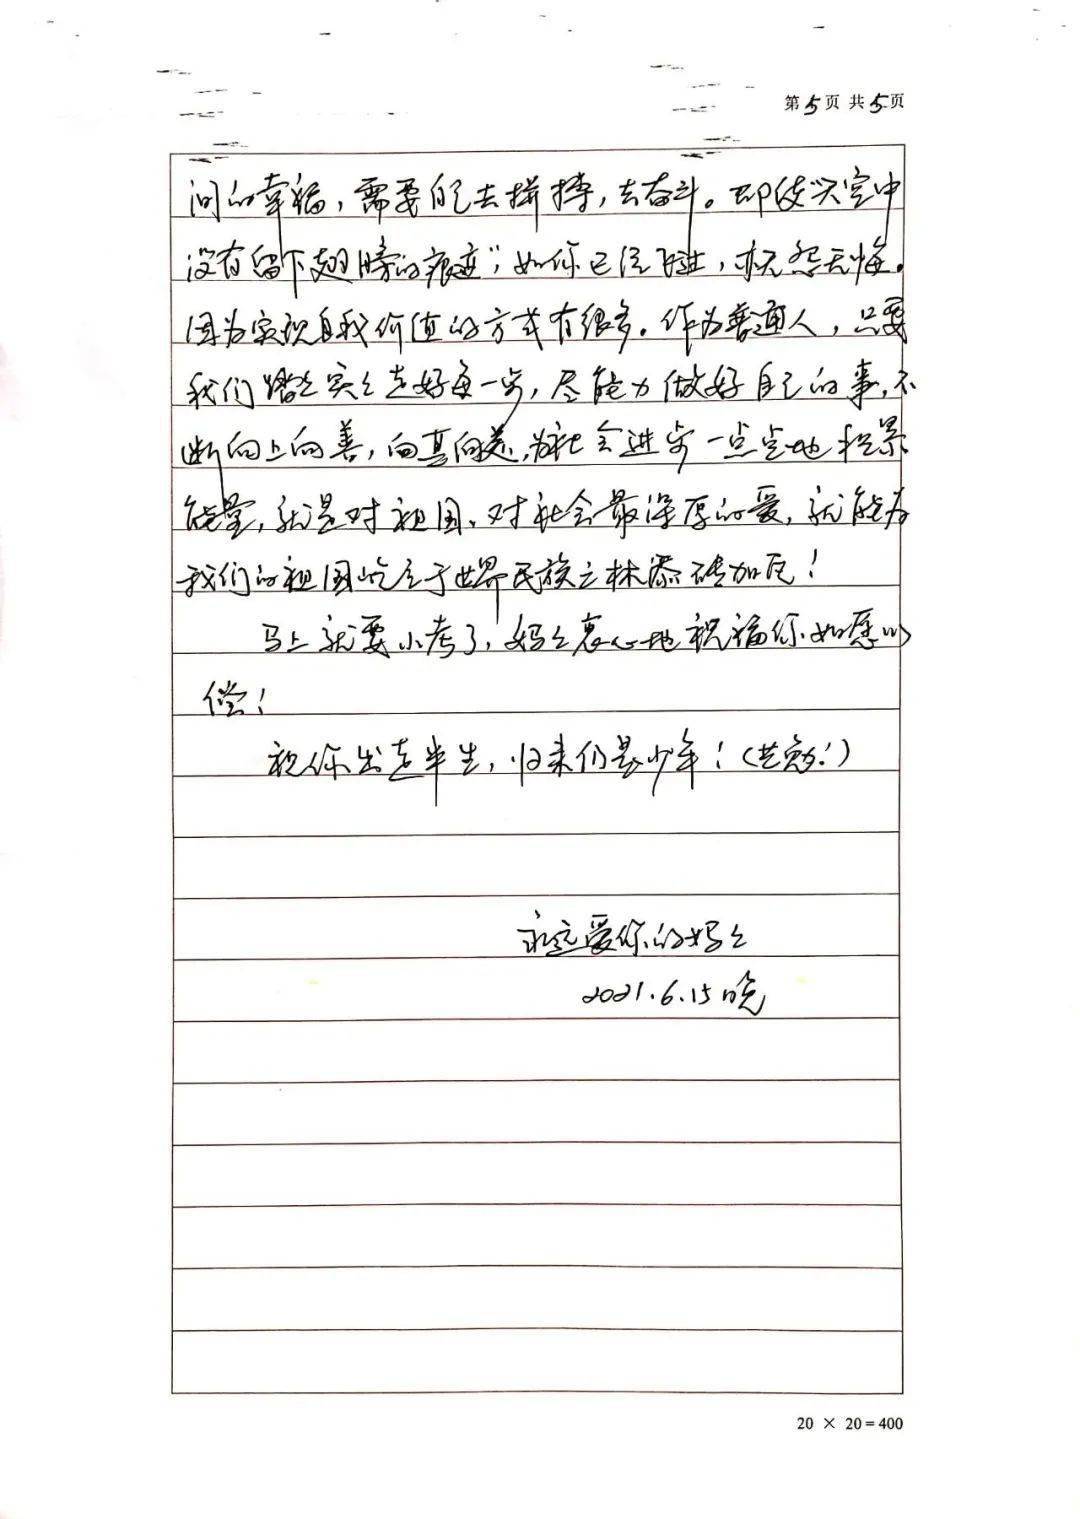 第5页 共5页
间的幸福，需要自己去拼搏，去奋斗。即使“天空中
没有留下翅膀的痕迹”，如你已经飞过，亦无怨无悔。
因为实现自我价值的方式有很多。作为普通人，只要
我们踏踏实实走好每一步，尽能力做好自己的事，不
断向上向善，向真向美，为社会进步一点点地积累
能量，就是对祖国、对社会最深厚的爱，就能为
我们的祖国屹立于世界民族之林添砖加瓦！
马上就要小考了，妈妈衷心地祝福你如愿以
偿！
祝你出走半生，归来仍是少年！（共勉！）
永远爱你的妈妈
2021.6.15晚
20 × 20=400